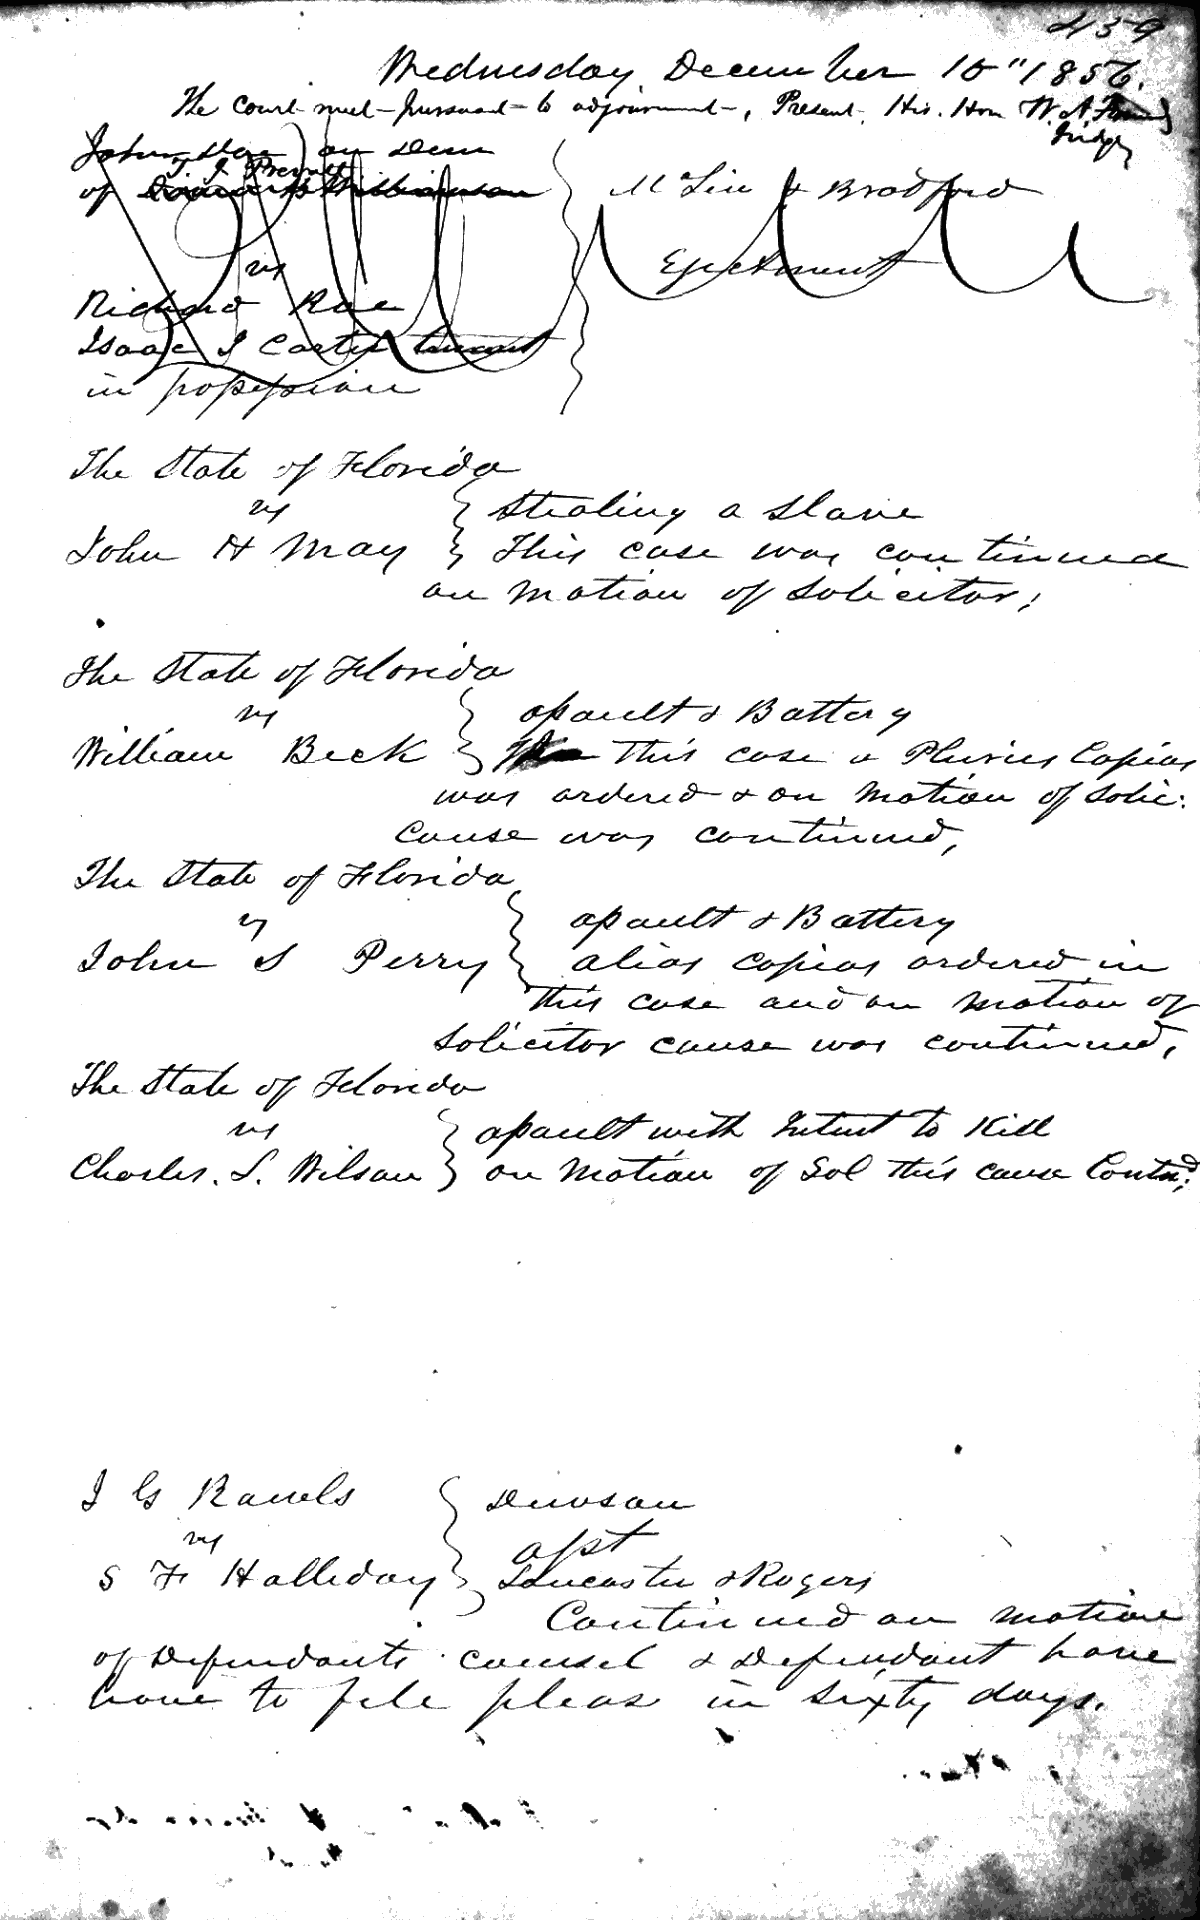 459
Wednesday December 10" 1856.
The Court met pursuant to adjournment, Present. His. Hon W. A.
Judge
John Doe on Dem
T. J. Prevatt
of Williamson
vs
McLin & Bradford
Ejectment
Richard Roe
Isaac J Carter tenant
in possession
The State of Florida
vs
Stealing a Slave
John H May This case was continued
on motion of Solicitor;
The State of Florida
vs
assault & Battery
William Beck This case a Pluries Capias
was ordered & on motion of Solic:
cause was continued,
The State of Florida
vs
assault & Battery
John S Perry alias capias ordered in
this case and on motion of
Solicitor cause was continued,
The State of Florida
vs
assault with Intent to Kill
Charles. S. Wilson on motion of Sol this cause Contnd;
J G Rawls Dawson
vs
asst
S F Halliday Lancaster & Rogers
Continued on motion
of Defendants counsel & Defendant have
have to file pleas in sixty days.